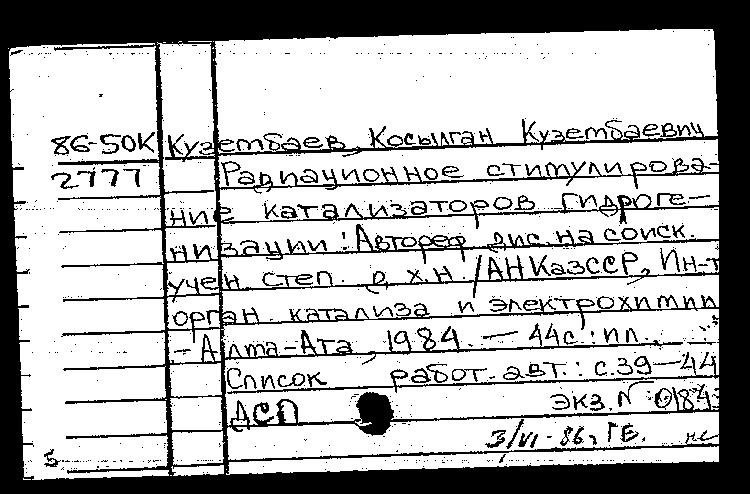 86-50К Кузембаев, Косылган Кузембаевич
2777 Радиационное стимулирова-
ние катализаторов гидроге-
низации: Автореф дис. на соиск.
учен. степ. д. х.н. /АН КазССР, Ин-т
орган. катализа и электрохимии
- Алма-Ата, 1984. — 44с.: ил.
Список работ. авт.: с.39—44
ДСП экз. № 0184
3/VI-86, ГБ. нс
5